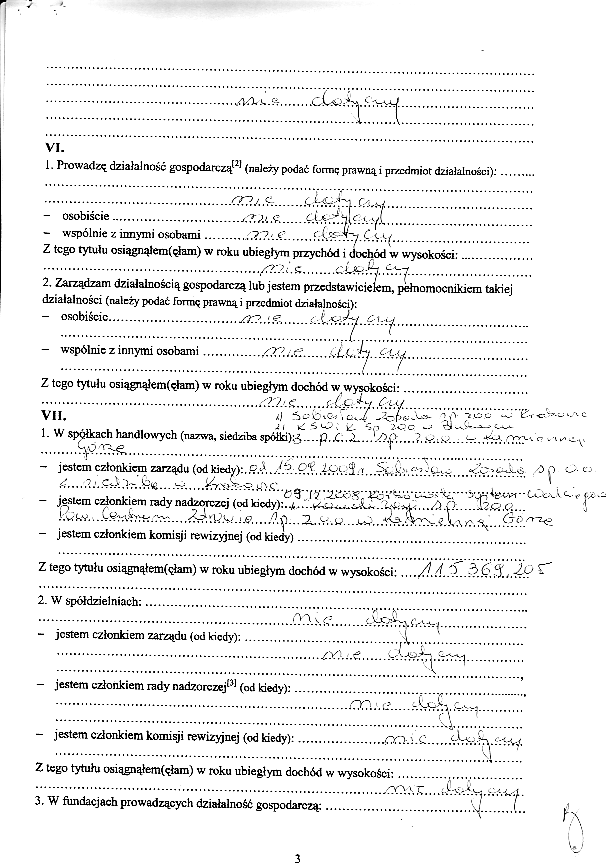 nie dotyczy
VI.
1. Prowadzę działalność gospodarczą[2] (należy podać formę prawną i przedmiot działalności): ..........
nie dotyczy
– osobiście ..... nie dotyczy
– wspólnie z innymi osobami ..... nie dotyczy
Z tego tytułu osiągnąłem(ęłam) w roku ubiegłym przychód i dochód w wysokości: ..........
nie dotyczy
2. Zarządzam działalnością gospodarczą lub jestem przedstawicielem, pełnomocnikiem takiej
działalności (należy podać formę prawną i przedmiot działalności):
– osobiście ..... nie dotyczy
– wspólnie z innymi osobami ..... nie dotyczy
Z tego tytułu osiągnąłem(ęłam) w roku ubiegłym dochód w wysokości: ..........
nie dotyczy
1) Sp zoo w Krakowie
VII.
2) KSWiK Sp zoo w
1. W spółkach handlowych (nazwa, siedziba spółki): 3 p.c.z. sp. z o.o w Kamiennej
Górze
– jestem członkiem zarządu (od kiedy): od 15.09.2009r. sp o.o
z siedzibą w Krakowie
– jestem członkiem rady nadzorczej (od kiedy):
Pow. Centrum Zdrowia Sp. z o.o w Kamiennej Górze
– jestem członkiem komisji rewizyjnej (od kiedy) ..........
Z tego tytułu osiągnąłem(ęłam) w roku ubiegłym dochód w wysokości: .... 115 369,205
2. W spółdzielniach: ..........
nie dotyczy
– jestem członkiem zarządu (od kiedy): ..........
nie dotyczy
– jestem członkiem rady nadzorczej[3] (od kiedy): ..........
nie dotyczy
– jestem członkiem komisji rewizyjnej (od kiedy): ..... nie dotyczy
Z tego tytułu osiągnąłem(ęłam) w roku ubiegłym dochód w wysokości: ..........
nie dotyczy
3. W fundacjach prowadzących działalność gospodarczą: ..........
3